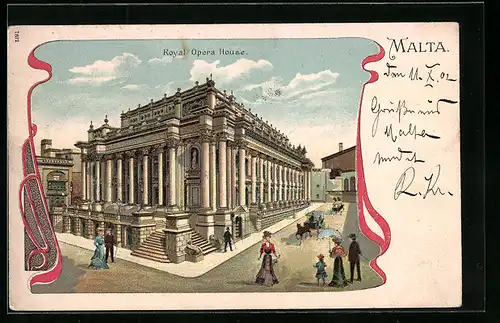 7801
Royal Opera House.
MALTA.
den 11. X. 02
Grüße aus
Malta
sendet
R. Kr.